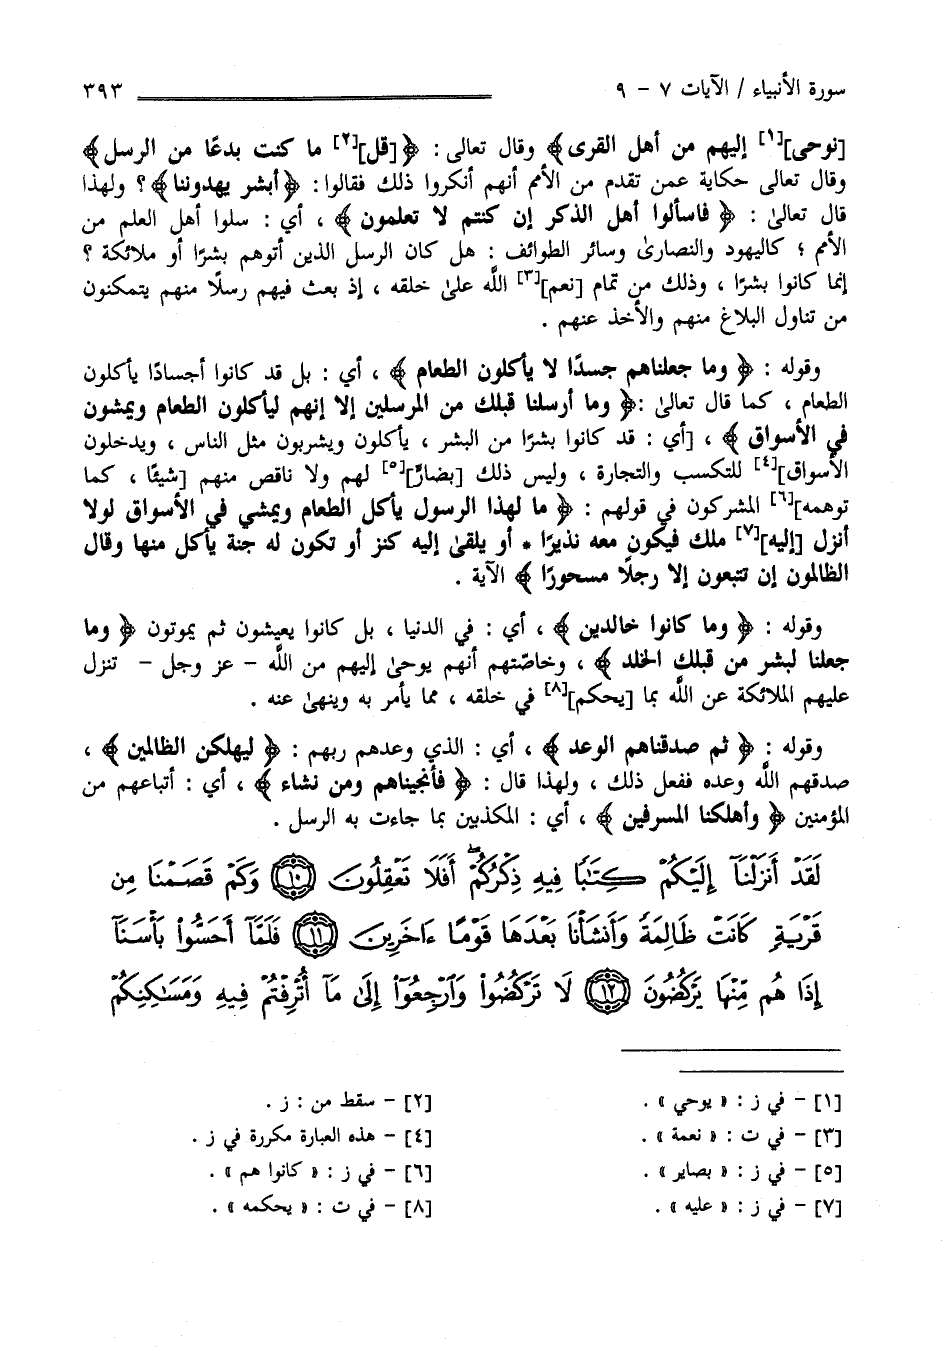 سورة الأنبياء / الآيات ٧ - ٩ ٣٩٣
[نوحي][١] إليهم من أهل القرى﴾ وقال تعالى : ﴿[قل][٢] ما كنت بدعًا من الرسل﴾
وقال تعالى حكاية عمن تقدم من الأمم أنهم أنكروا ذلك فقالوا: ﴿أبشر يهدوننا﴾؟ ولهذا
قال تعالىٰ : ﴿ فاسألوا أهل الذكر إن كنتم لا تعلمون ﴾ ، أي : سلوا أهل العلم من
الأمم ؛ كاليهود والنصارىٰ وسائر الطوائف : هل كان الرسل الذين أتوهم بشرًا أو ملائكة ؟
إنما كانوا بشرًا ، وذلك من تمام [نعم][٣] اللَّه علىٰ خلقه ، إذ بعث فيهم رسلًا منهم يتمكنون
من تناول البلاغ منهم والأخذ عنهم .
وقوله : ﴿ وما جعلناهم جسدًا لا يأكلون الطعام ﴾ ، أي : بل قد كانوا أجسادًا يأكلون
الطعام ، كما قال تعالىٰ :﴿ وما أرسلنا قبلك من المرسلين إلا إنهم ليأكلون الطعام ويمشون
في الأسواق ﴾ ، [أي : قد كانوا بشرًا من البشر ، يأكلون ويشربون مثل الناس ، ويدخلون
الأسواق][٤] للتكسب والتجارة ، وليس ذلك [بضارٍّ][٥] لهم ولا ناقص منهم [شيئًا ، كما
توهمه][٦] المشركون في قولهم : ﴿ ما لهذا الرسول يأكل الطعام ويمشي في الأسواق لولا
أنزل [إليه][٧] ملك فيكون معه نذيرًا * أو يلقىٰ إليه كنز أو تكون له جنة يأكل منها وقال
الظالمون إن تتبعون إلا رجلًا مسحورًا ﴾ الآية .
وقوله : ﴿ وما كانوا خالدين ﴾ ، أي : في الدنيا ، بل كانوا يعيشون ثم يموتون ﴿ وما
جعلنا لبشر من قبلك الخلد ﴾ ، وخاصّتهم أنهم يوحىٰ إليهم من اللَّه - عز وجل - تنزل
عليهم الملائكة عن اللَّه بما [يحكم][٨] في خلقه ، مما يأمر به وينهىٰ عنه .
وقوله : ﴿ ثم صدقناهم الوعد ﴾ ، أي : الذي وعدهم ربهم : ﴿ ليهلكن الظالمين ﴾ ،
صدقهم اللَّه وعده ففعل ذلك ، ولهذا قال : ﴿ فأنجيناهم ومن نشاء ﴾ ، أي : أتباعهم من
المؤمنين ﴿ وأهلكنا المسرفين ﴾ ، أي : المكذبين بما جاءت به الرسل .
لَقَدْ أَنزَلْنَآ إِلَيْكُمْ كِتَٰبًا فِيهِ ذِكْرُكُمْ ۖ أَفَلَا تَعْقِلُونَ ١٠ وَكَمْ قَصَمْنَا مِن
قَرْيَةٍ كَانَتْ ظَالِمَةً وَأَنشَأْنَا بَعْدَهَا قَوْمًا ءَاخَرِينَ ١١ فَلَمَّآ أَحَسُّوا۟ بَأْسَنَآ
إِذَا هُم مِّنْهَا يَرْكُضُونَ ١٢ لَا تَرْكُضُوا۟ وَٱرْجِعُوٓا۟ إِلَىٰ مَآ أُتْرِفْتُمْ فِيهِ وَمَسَٰكِنِكُمْ
[١] - في ز : « يوحي » . [٢] - سقط من : ز .
[٣] - في ت : « نعمة » . [٤] - هذه العبارة مكررة في ز .
[٥] - في ز : « بصاير » . [٦] - في ز : « كانوا هم » .
[٧] - في ز : « عليه » . [٨] - في ت : « يحكمه » .